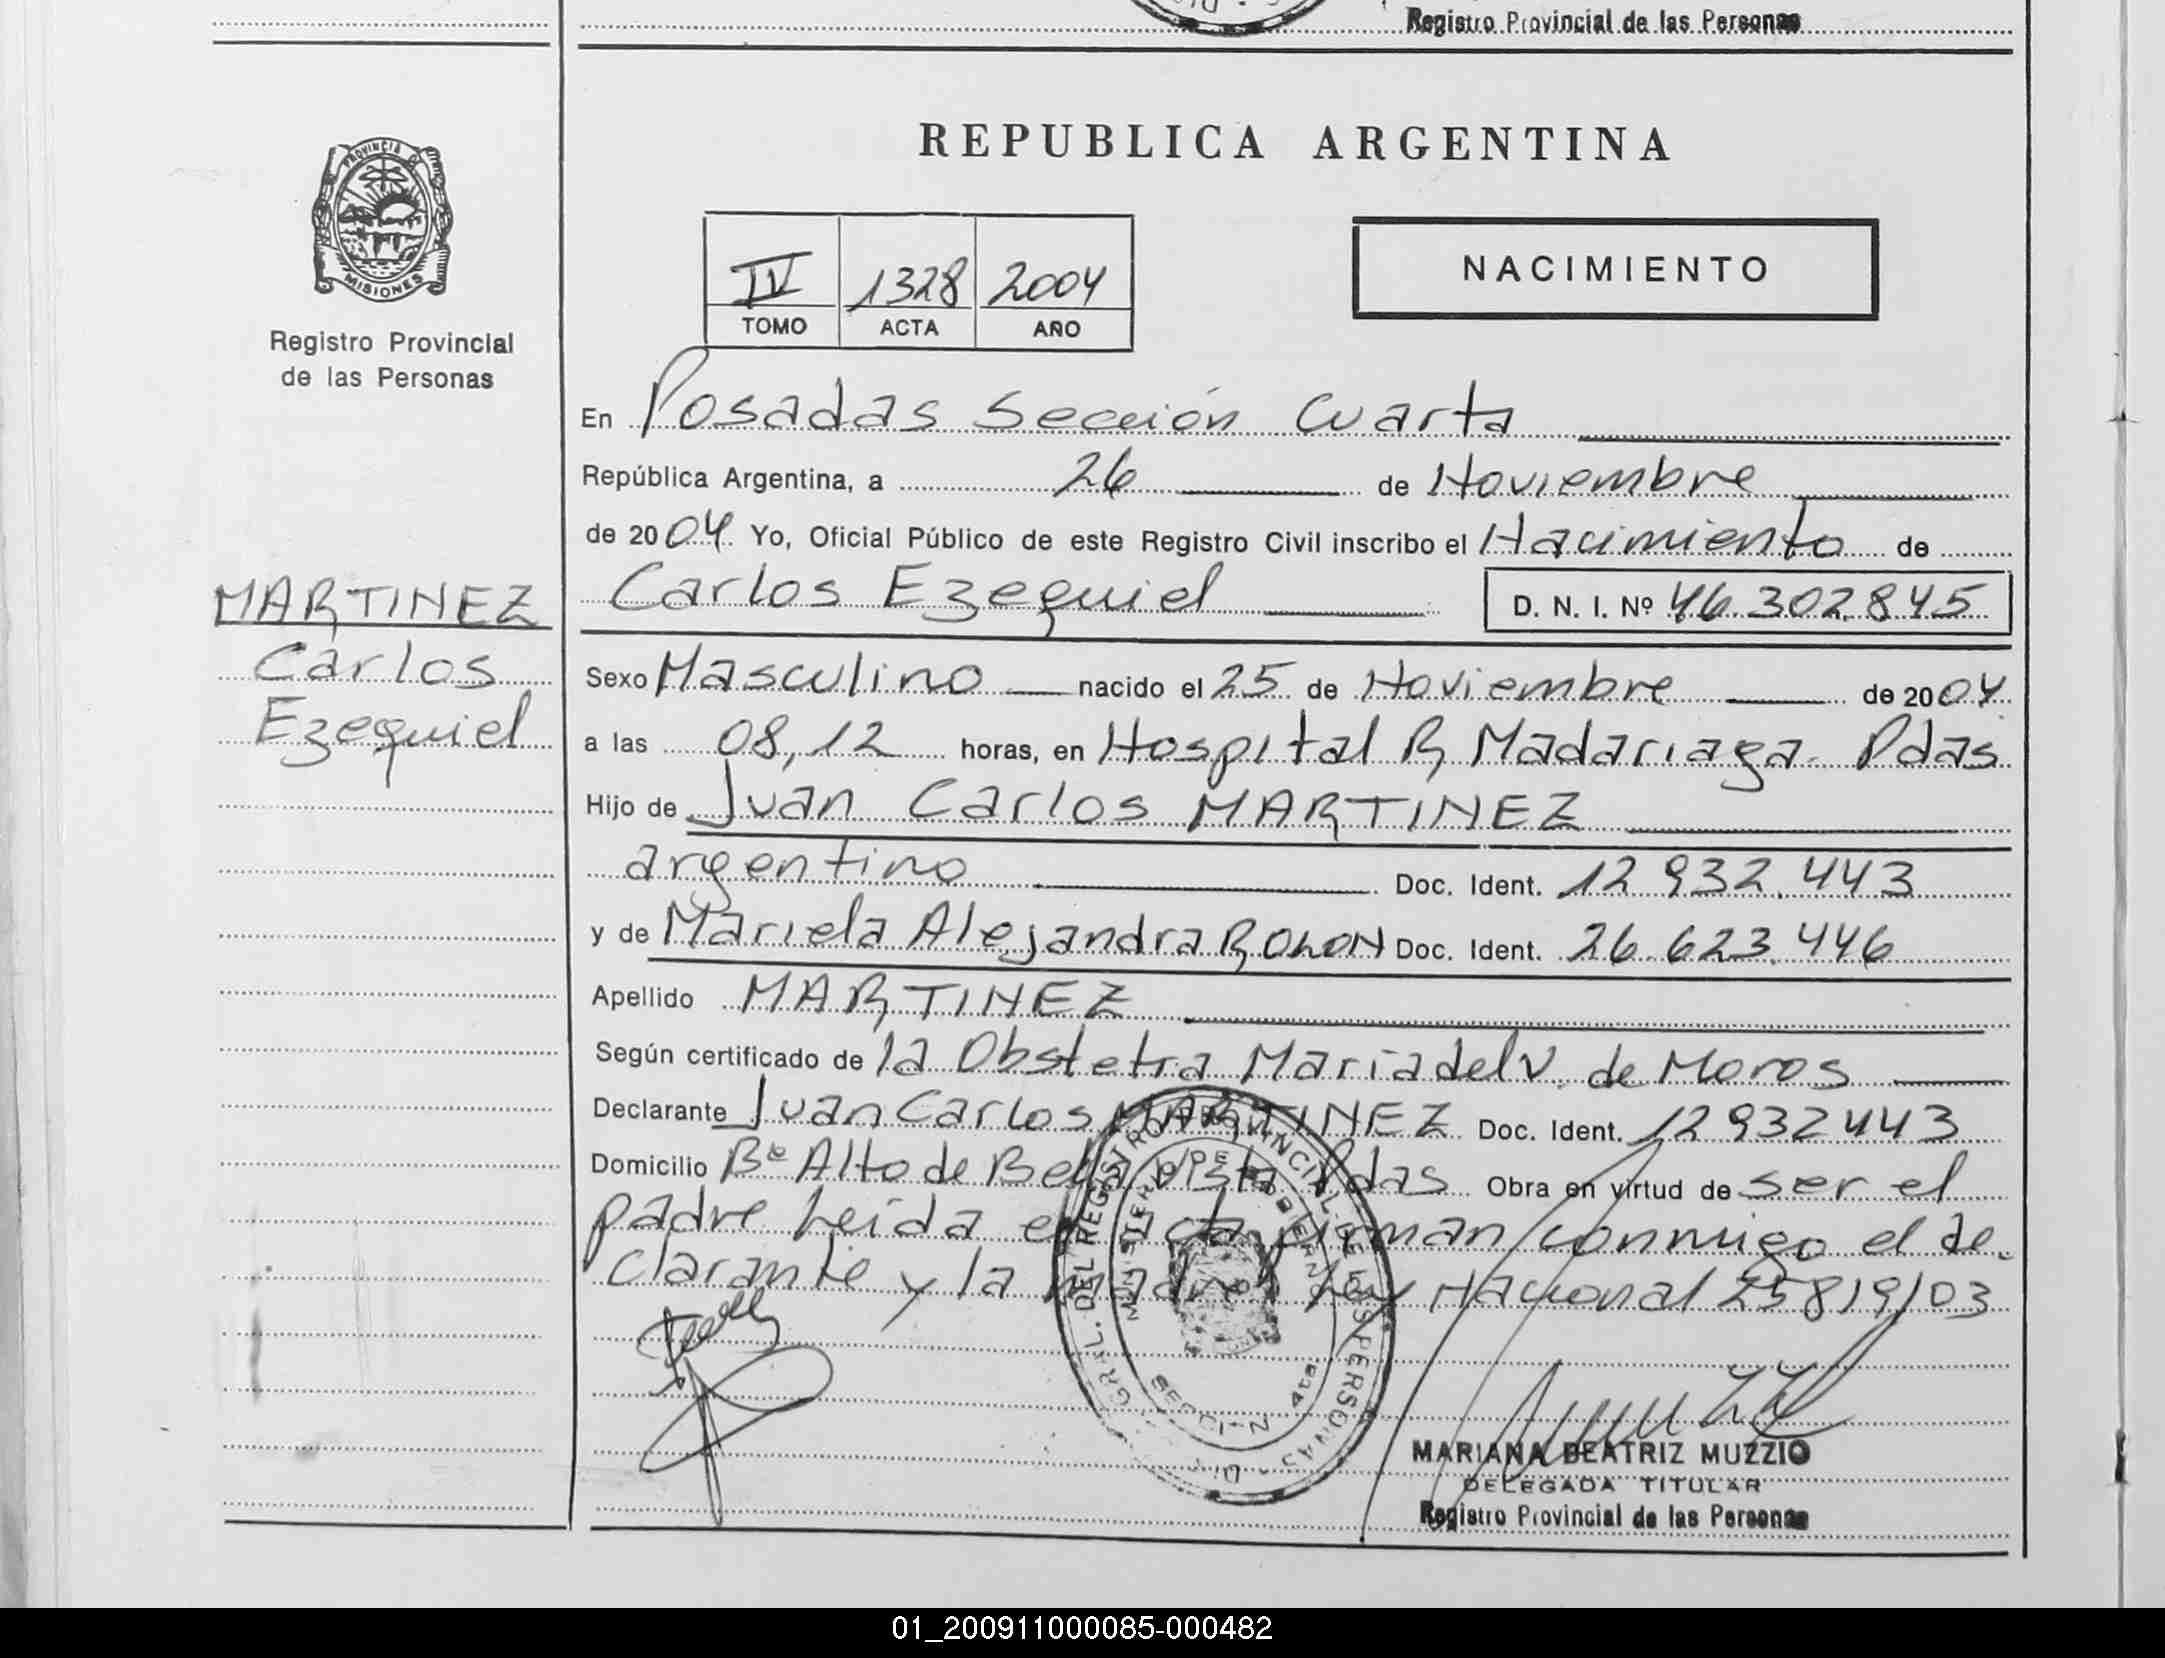 Registro Provincial de las Personas
REPUBLICA ARGENTINA
PROVINCIA D
MISIONES
Registro Provincial
de las Personas
IV 1328 2004
TOMO ACTA AÑO
NACIMIENTO
En Posadas Sección Cuarta
República Argentina, a 26 de Noviembre
de 2004 Yo, Oficial Público de este Registro Civil inscribo el Nacimiento de
Carlos Ezequiel D. N. I. Nº 46.302.845
MARTINEZ
Carlos
Ezequiel
Sexo Masculino nacido el 25 de Noviembre de 2004
a las 08,12 horas, en Hospital R. Madariaga. Pdas
Hijo de Juan Carlos MARTINEZ
argentino Doc. Ident. 12.932.443
y de Mariela Alejandra ROLON Doc. Ident. 26.623.446
Apellido MARTINEZ
Según certificado de la Obstetra Maria del V. de Moros
Declarante Juan Carlos MARTINEZ Doc. Ident. 12932443
Domicilio Bº Alto de Bella Vista Pdas Obra en virtud de ser el
padre Leída el acta firman conmigo el de-
clarante y la madre Ley Nacional 25819/03
GRAL. DEL REGISTRO PROVINCIAL DE LAS PERSONAS - DIR.
MINISTERIO DE GOBIERNO
SECCION 4ta
MARIANA BEATRIZ MUZZIO
DELEGADA TITULAR
Registro Provincial de las Personas
01_200911000085-000482